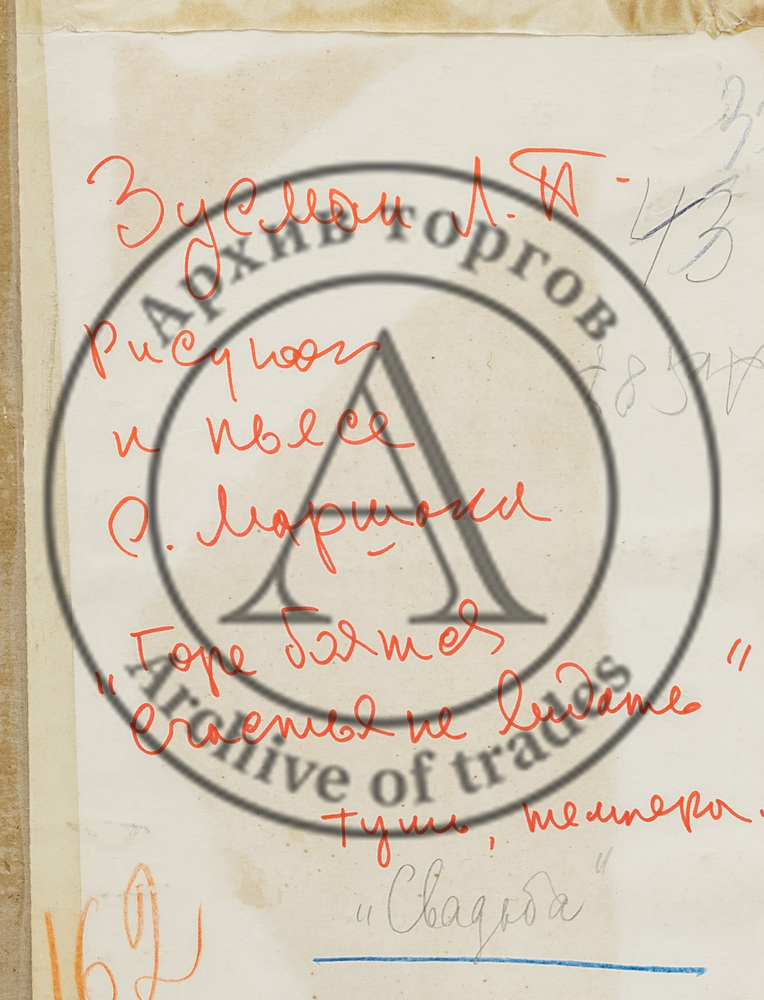 Зусман Л. П.
43
Рисунок
к пьесе
С. Маршака
"Горе бояться
счастья не видать"
тушь, темпера.
"Свадьба"
162
Архив торгов
Archive of trades